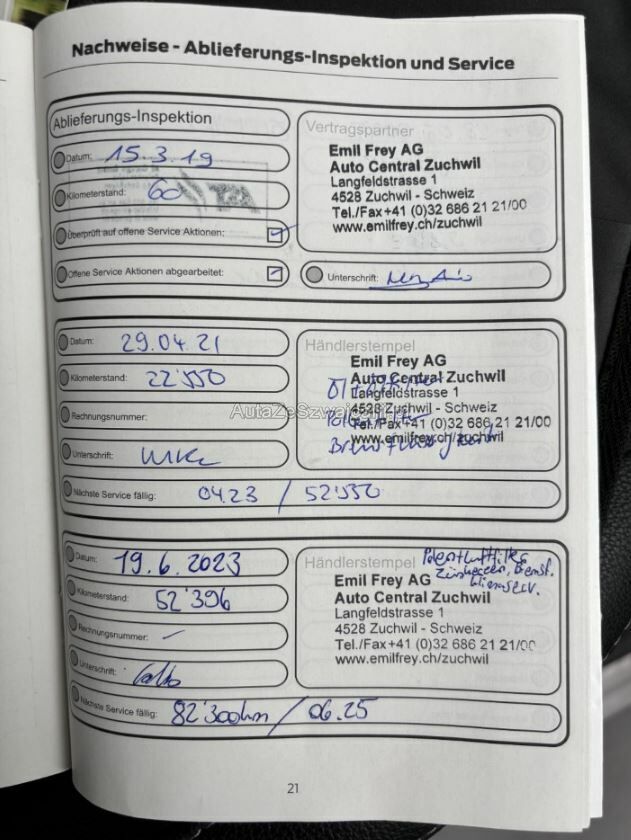 Nachweise - Ablieferungs-Inspektion und Service
Ablieferungs-Inspektion
Datum: 15.3.19
Kilometerstand: 60
Überprüft auf offene Service Aktionen:
Offene Service Aktionen abgearbeitet:
Vertragspartner
Emil Frey AG
Auto Central Zuchwil
Langfeldstrasse 1
4528 Zuchwil - Schweiz
Tel./Fax+41 (0)32 686 21 21/00
www.emilfrey.ch/zuchwil
Unterschrift:
Datum: 29.04.21
Kilometerstand: 22'550
Rechnungsnummer:
Unterschrift:
Nächste Service fällig: 04.23 / 52'550
Händlerstempel
Emil Frey AG
Auto Central Zuchwil
Langfeldstrasse 1
4528 Zuchwil - Schweiz
Tel./Fax+41 (0)32 686 21 21/00
www.emilfrey.ch/zuchwil
Datum: 19.6.2023
Kilometerstand: 52'396
Rechnungsnummer: -
Unterschrift:
Nächste Service fällig: 82'300km / 06.25
Händlerstempel
Emil Frey AG
Auto Central Zuchwil
Langfeldstrasse 1
4528 Zuchwil - Schweiz
Tel./Fax+41 (0)32 686 21 21/00
www.emilfrey.ch/zuchwil
21